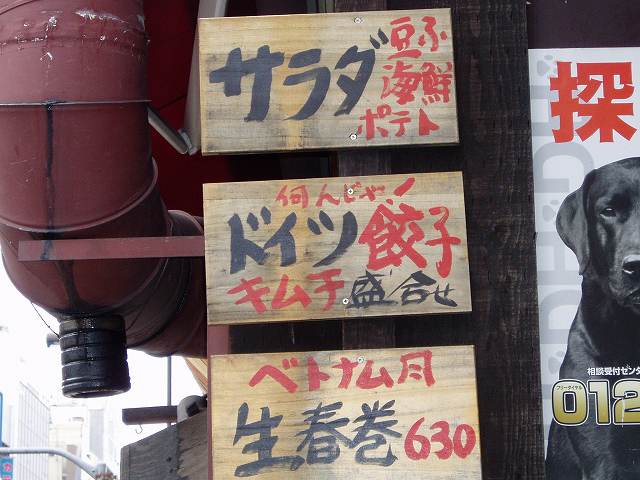 サラダ
豆ふ
海鮮
ポテト
何んじゃ！
ドイツ餃子
キムチ盛合せ
ベトナム風
生春巻630
探
相談受付セン
フリーダイヤル
012